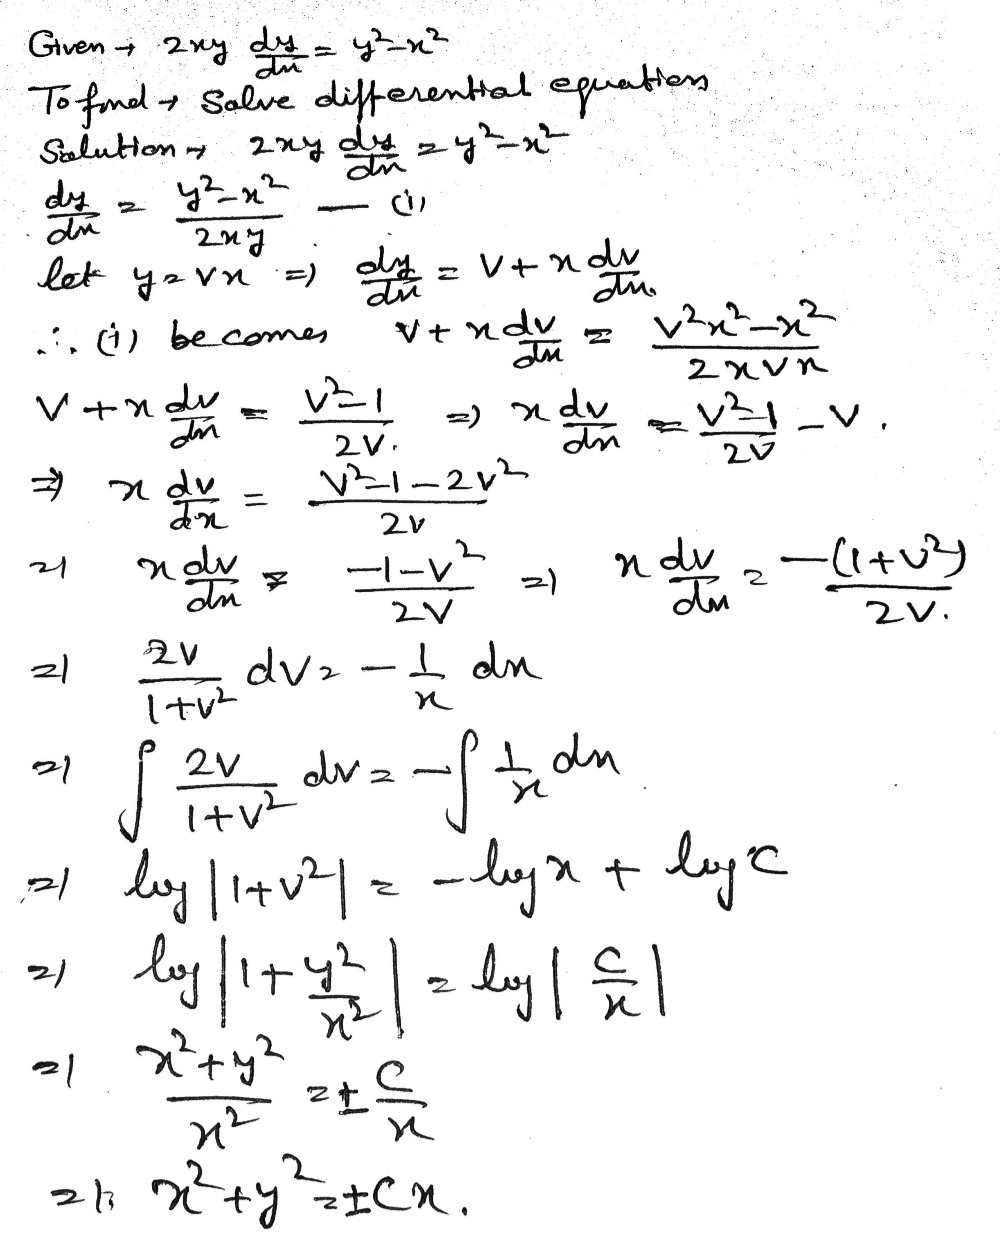 Given → 2xy dy/dx = y²-x²
To find → Solve differential equation
Solution → 2xy dy/dx = y²-x²
dy/dx = (y²-x²)/(2xy) — (i)
let y = vx ⇒ dy/dx = v + x dv/dx.
∴ (i) becomes v + x dv/dx = (v²x²-x²)/(2xvx)
v + x dv/dx = (v²-1)/(2v). ⇒ x dv/dx = (v²-1)/(2v) - v.
⇒ x dv/dx = (v²-1-2v²)/(2v)
⇒ x dv/dx = (-1-v²)/(2v) ⇒ x dv/dx = -(1+v²)/(2v).
⇒ 2v/(1+v²) dv = - 1/x dx
⇒ ∫ 2v/(1+v²) dv = -∫ 1/x dx
⇒ log |1+v²| = - log x + log C
⇒ log |1 + y²/x²| = log | C/x |
⇒ (x²+y²)/x² = ± C/x
⇒ x²+y² = ±Cx.